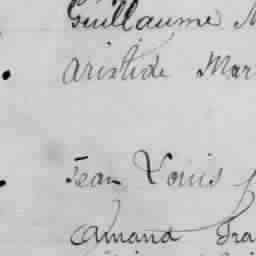 Guillaume
Aristide Mar
Jean Louis
Amand Fra